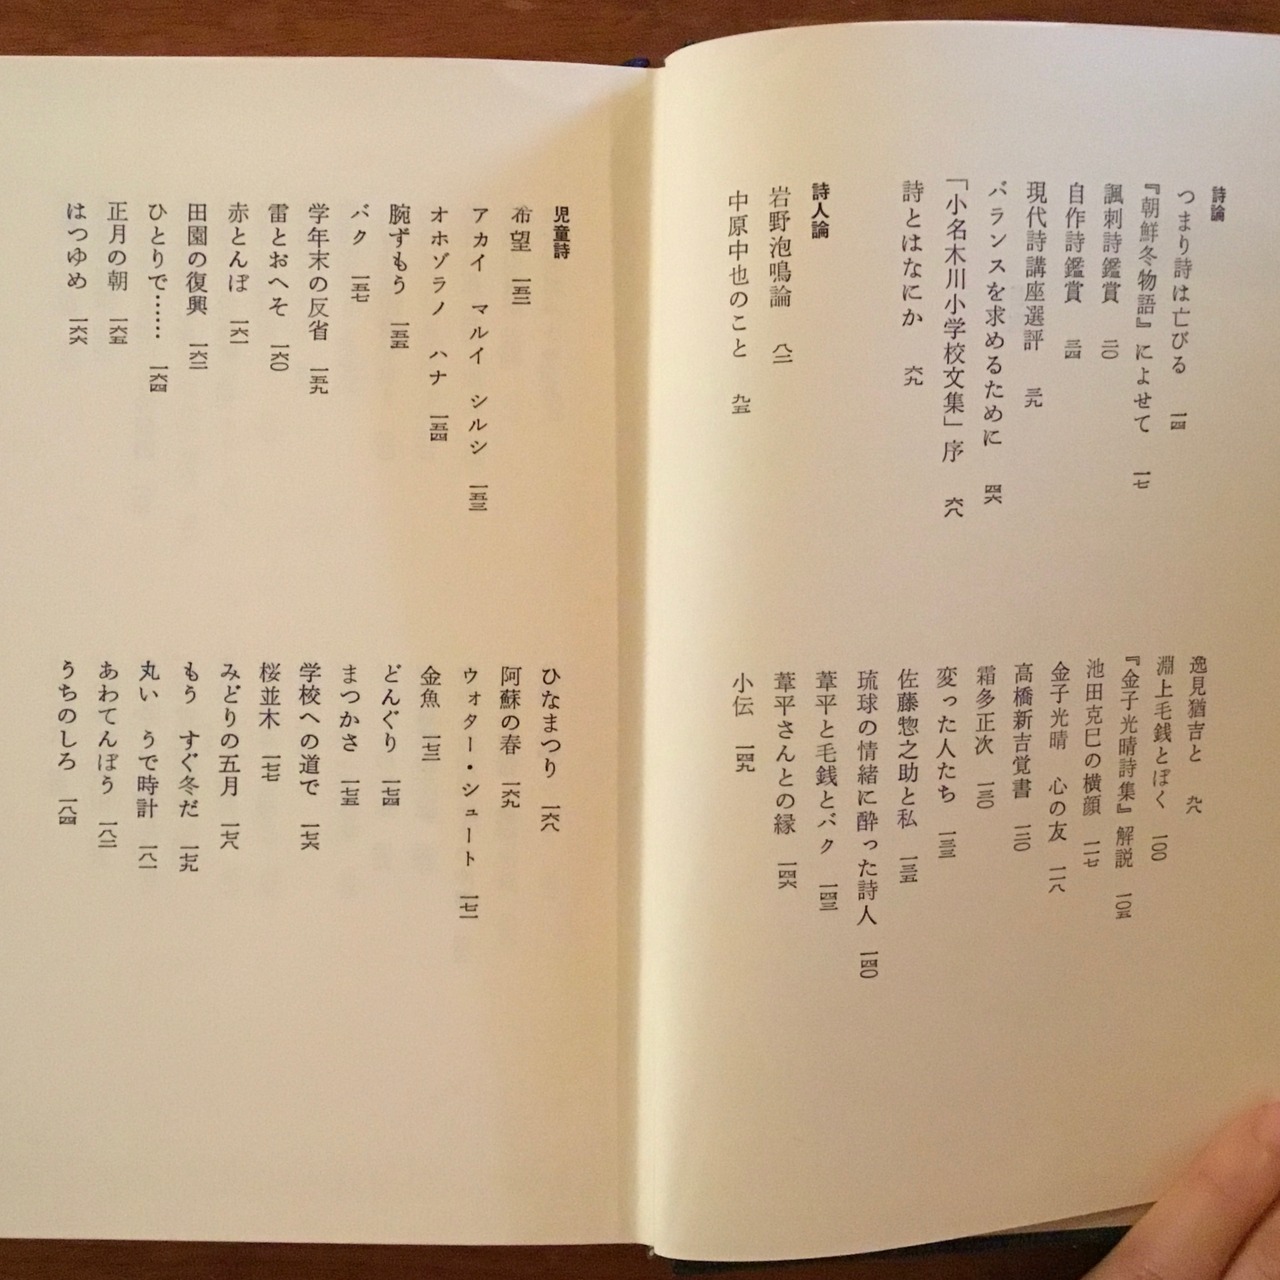 詩論
つまり詩は亡びる 一四
『朝鮮冬物語』によせて 一七
諷刺詩鑑賞 二〇
自作詩鑑賞 三四
現代詩講座選評 三九
バランスを求めるために 四六
「小名木川小学校文集」序 六八
詩とはなにか 六九
詩人論
岩野泡鳴論 八二
中原中也のこと 九五
逸見猶吉と 九八
淵上毛銭とぼく 一〇〇
『金子光晴詩集』解説 一〇五
池田克巳の横顔 一一七
金子光晴 心の友 一一八
高橋新吉覚書 一二〇
霜多正次 一三〇
変った人たち 一三三
佐藤惣之助と私 一三五
琉球の情緒に酔った詩人 一四〇
葦平と毛銭とバク 一四三
葦平さんとの縁 一四六
小伝 一四九
児童詩
希望 一五二
アカイ マルイ シルシ 一五三
オホゾラノ ハナ 一五四
腕ずもう 一五五
バク 一五七
学年末の反省 一五九
雷とおへそ 一六〇
赤とんぼ 一六一
田園の復興 一六二
ひとりで…… 一六四
正月の朝 一六五
はつゆめ 一六六
ひなまつり 一六八
阿蘇の春 一六九
ウォター・シュート 一七一
金魚 一七三
どんぐり 一七四
まつかさ 一七五
学校への道で 一七六
桜並木 一七七
みどりの五月 一七八
もう すぐ冬だ 一七九
丸い うで時計 一八一
あわてんぼう 一八二
うちのしろ 一八四